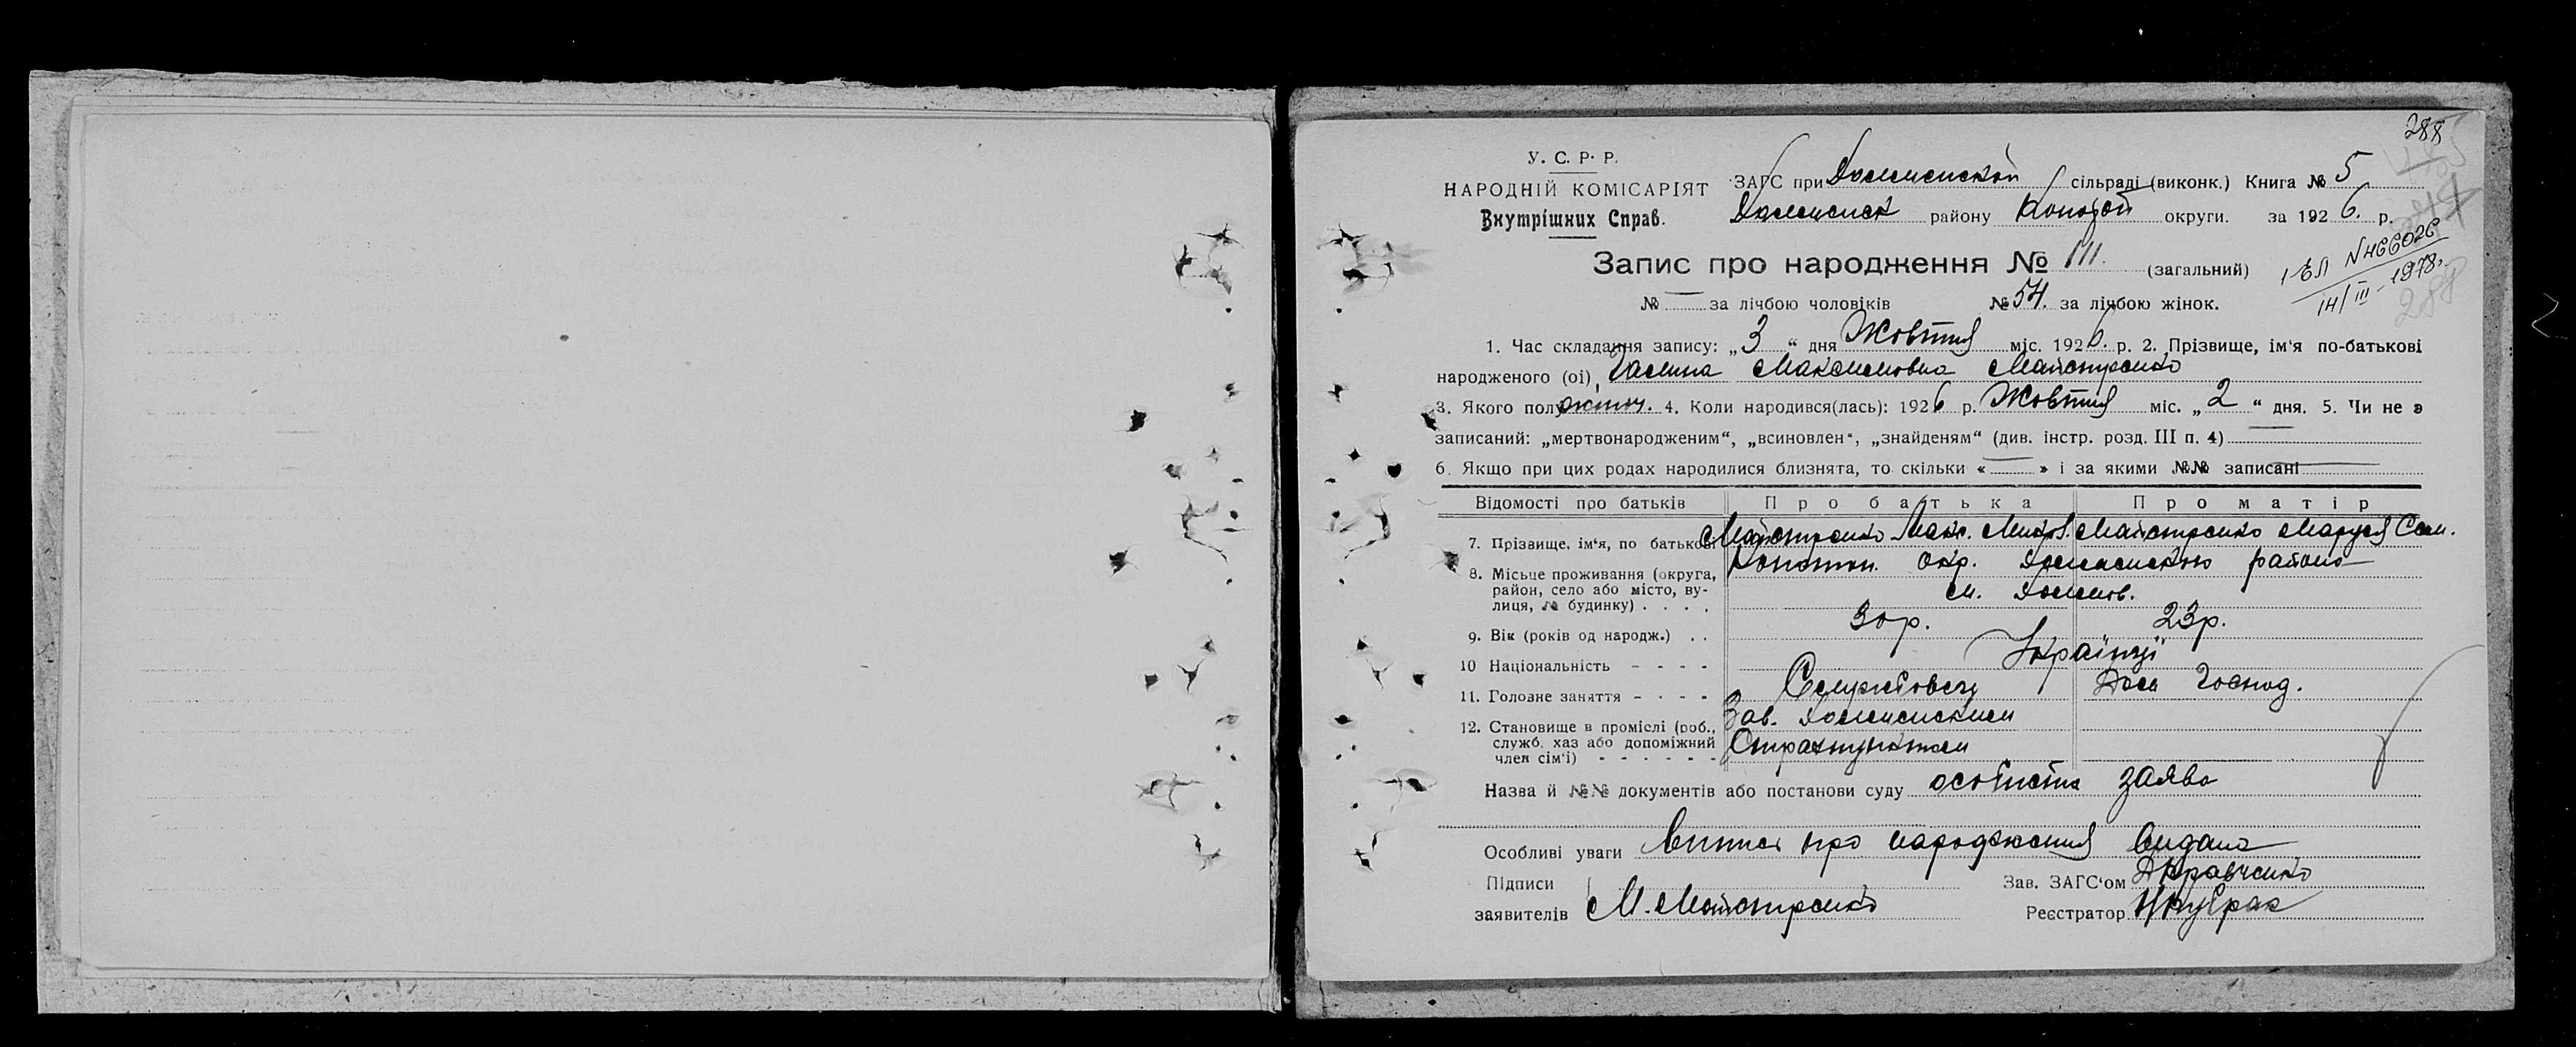 288
У. С. Р. Р.
НАРОДНІЙ КОМІСАРІЯТ
Внутрішних Справ.
ЗАГС при сільраді (виконк.) Книга № 5
району Конотоп округи. за 1926. р.
Запис про народження № 111. (загальний)
14/III - 1978.
№ — за лічбою чоловіків № 54. за лічбою жінок.
1. Час складання запису: „3“ дня Жовтня міс. 1926. р. 2. Прізвище, ім'я по-батькові
народженого (оі) Галина Максимовна Майстренко
3. Якого полу жіноч. 4. Коли народився(лась): 1926 р. Жовтня міс. „2“ дня. 5. Чи не э
записаний: „мертвонародженим“, „всиновлен“, „знайденям“ (див. інстр. розд. III п. 4)
6. Якщо при цих родах народилися близнята, то скільки «—» і за якими №№ записані —
Відомості про батьків Про батька Про матір
7. Прізвище, ім'я, по батькові Майстренко Макс. Майстренко Маруся Сем.
8. Місьце проживання (округа, район, село або місто, вулиця, № будинку) Конотоп. Окр. району
м.
9. Вік (років од народж.) 30 р. 23 р.
10 Національність Українці
11. Головне заняття Службовець Дом. Господ.
12. Становище в промислі (роб., служб. хаз або допоміжний член сім'ї) Зав.
Страхпунктом
Назва й №№ документів або постанови суду особиста заява
Особливі уваги Випись про народження видана
Підписи
заявителів М. Майстренко
Зав. ЗАГС'ом Кравченко
Реєстратор